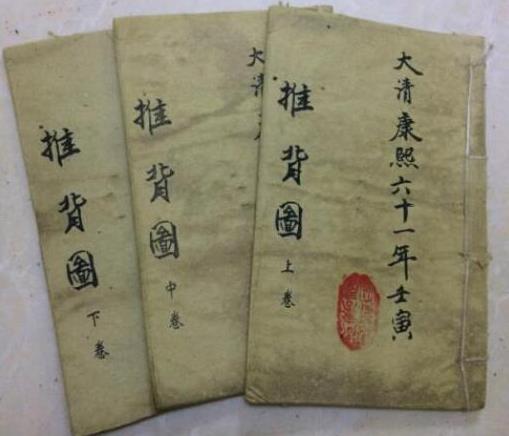 大清康熙六十一年壬寅
推背圖 上卷
大清
推背圖 中卷
推背圖 下卷